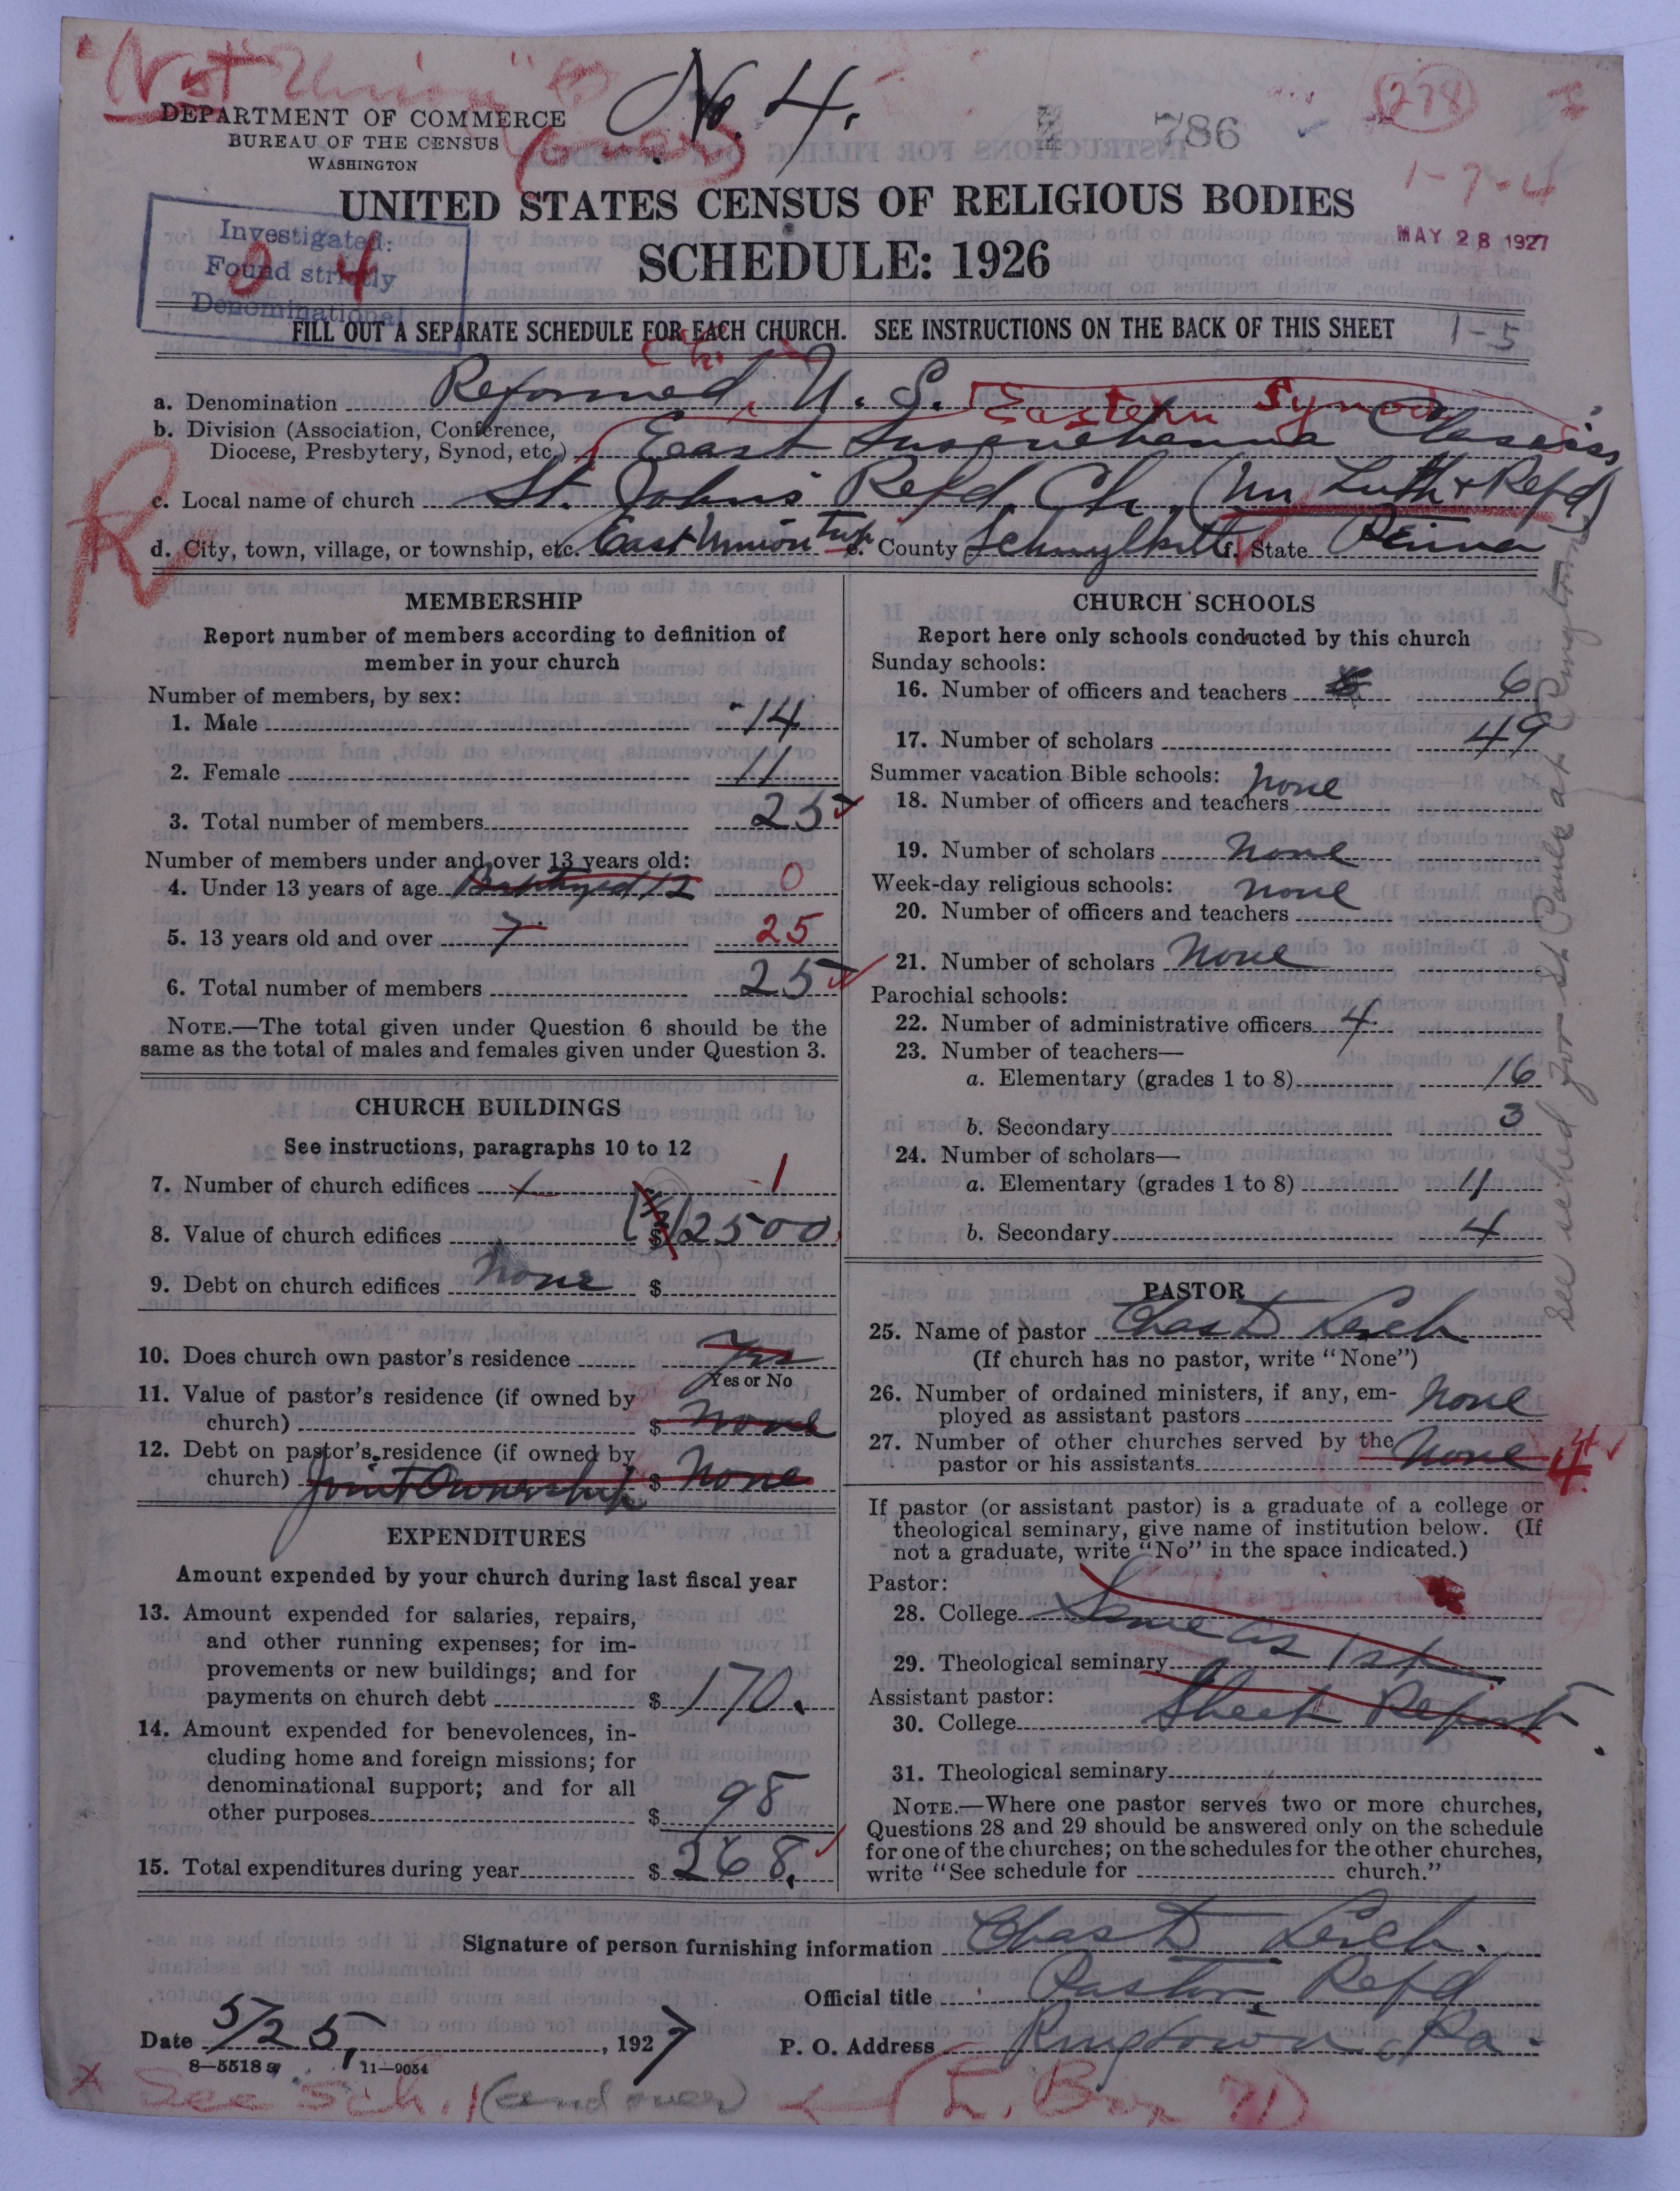 "Not Union"
No. 4.
786
278
DEPARTMENT OF COMMERCE
BUREAU OF THE CENSUS
WASHINGTON
1-7-4
UNITED STATES CENSUS OF RELIGIOUS BODIES
MAY 28 1927
SCHEDULE: 1926
Investigated:
Found strictly
Denominational
0 4
FILL OUT A SEPARATE SCHEDULE FOR EACH CHURCH. SEE INSTRUCTIONS ON THE BACK OF THIS SHEET
1-5
Ch.
a. Denomination Reformed, U. S. Eastern Synod
b. Division (Association, Conference,
Diocese, Presbytery, Synod, etc.) East Susquehanna Classis
c. Local name of church St. Johns Refd. Ch. (Un Luth + Refd)
d. City, town, village, or township, etc. East Union twp e. County Schuylkill f. State Penna
R
MEMBERSHIP
Report number of members according to definition of
member in your church
Number of members, by sex:
1. Male 14
2. Female 11
3. Total number of members 25
Number of members under and over 13 years old:
4. Under 13 years of age Baptized 12 0
5. 13 years old and over 7 25
6. Total number of members 25
NOTE.—The total given under Question 6 should be the
same as the total of males and females given under Question 3.
CHURCH BUILDINGS
See instructions, paragraphs 10 to 12
7. Number of church edifices 1 1
8. Value of church edifices (1/2) $ 2500
9. Debt on church edifices None $
10. Does church own pastor's residence Yes
Yes or No
11. Value of pastor's residence (if owned by
church) $ None
12. Debt on pastor's residence (if owned by
church) Joint Ownership $ None
EXPENDITURES
Amount expended by your church during last fiscal year
13. Amount expended for salaries, repairs,
and other running expenses; for im-
provements or new buildings; and for
payments on church debt $ 170.
14. Amount expended for benevolences, in-
cluding home and foreign missions; for
denominational support; and for all
other purposes $ 98
15. Total expenditures during year $ 268.
CHURCH SCHOOLS
Report here only schools conducted by this church
Sunday schools:
16. Number of officers and teachers 6
17. Number of scholars 49
Summer vacation Bible schools:
18. Number of officers and teachers None
19. Number of scholars None
Week-day religious schools:
20. Number of officers and teachers None
21. Number of scholars None
Parochial schools:
22. Number of administrative officers 4
23. Number of teachers—
a. Elementary (grades 1 to 8) 16
b. Secondary 3
24. Number of scholars—
a. Elementary (grades 1 to 8) 11
b. Secondary 4
PASTOR
25. Name of pastor Chas D Lerch
(If church has no pastor, write "None")
26. Number of ordained ministers, if any, em-
ployed as assistant pastors None
27. Number of other churches served by the
pastor or his assistants None 4
If pastor (or assistant pastor) is a graduate of a college or
theological seminary, give name of institution below. (If
not a graduate, write "No" in the space indicated.)
Pastor:
28. College Same as
29. Theological seminary 1st
Assistant pastor:
30. College Sheet Report
31. Theological seminary
NOTE.—Where one pastor serves two or more churches,
Questions 28 and 29 should be answered only on the schedule
for one of the churches; on the schedules for the other churches,
write "See schedule for church."
See sched for St Pauls at Ringtown
Signature of person furnishing information Chas D Lerch.
Official title Pastor, Refd
Date 5/25, 1927 P. O. Address Ringtown, Pa.
8-5518a 11-9054
x See Sch. 1 (and over) (L. Box 71)